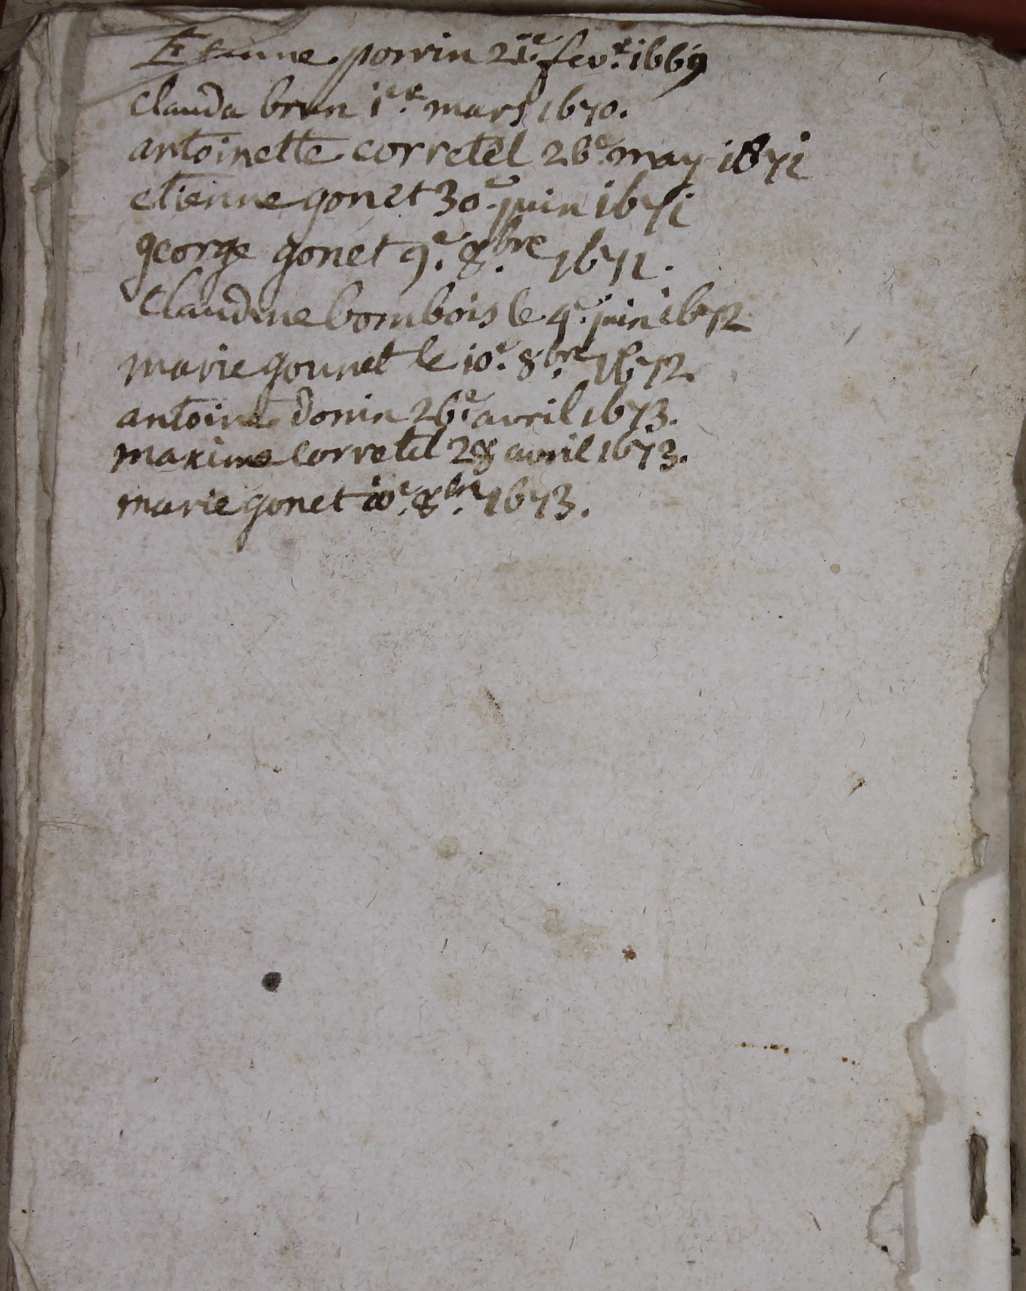 Etienne porrin 21e fevr 1669
Clauda brun 1er mars 1670.
antoinette corretel 26e may 1671
etienne gonet 30e juin 1671
george gonet 9e. 8.bre 1671.
Claudine bombois le 4e juin 1672
marie gounet le 10e. 8bre 1672.
antoine donin 26e avril 1673.
maxime corretel 28 avril 1673.
marie gonet 10e. 8bre 1673.